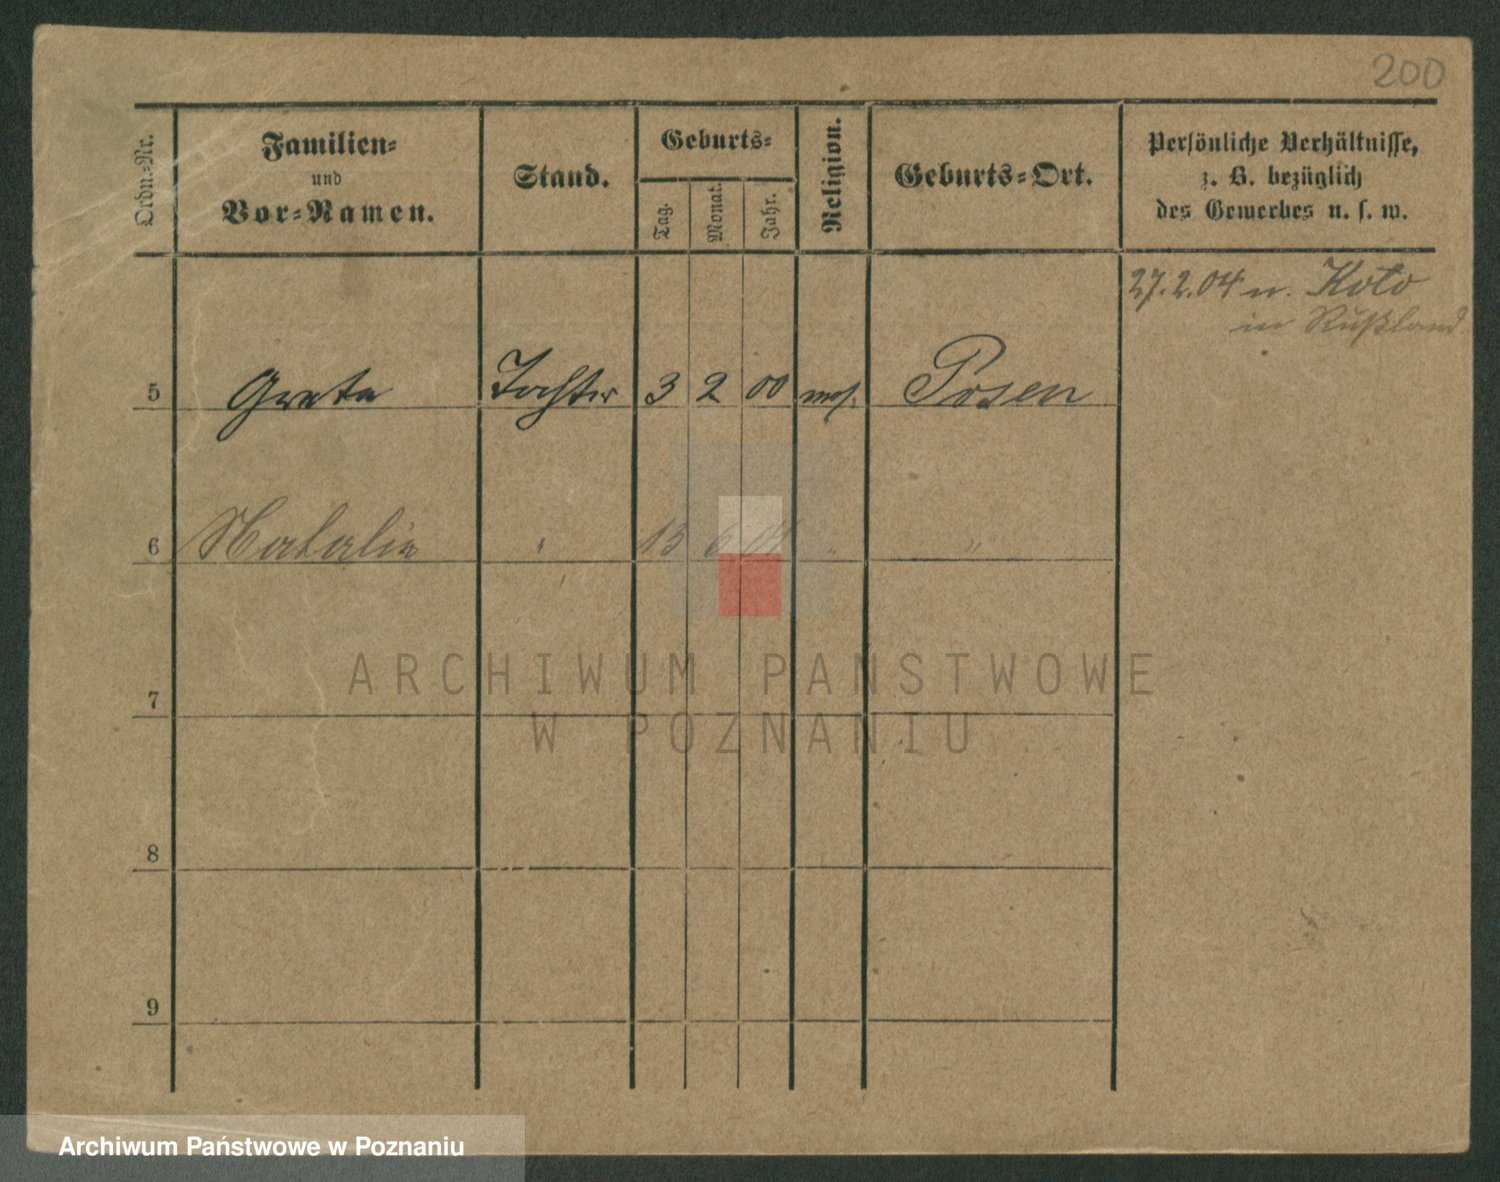 200
Ordn.-Nr. Familien- und Vor-Namen. Stand. Geburts- Tag. Monat. Jahr. Religion. Geburts-Ort. Persönliche Verhältnisse, z. B. bezüglich des Gewerbes u. s. w.
27.2.04 n. Kolo
in Rußland
5 Greta Tochter 3 2 00 mos. Posen
6 Natalie " 6 " "
7
8
9
ARCHIWUM PAŃSTWOWE
W POZNANIU
Archiwum Państwowe w Poznaniu